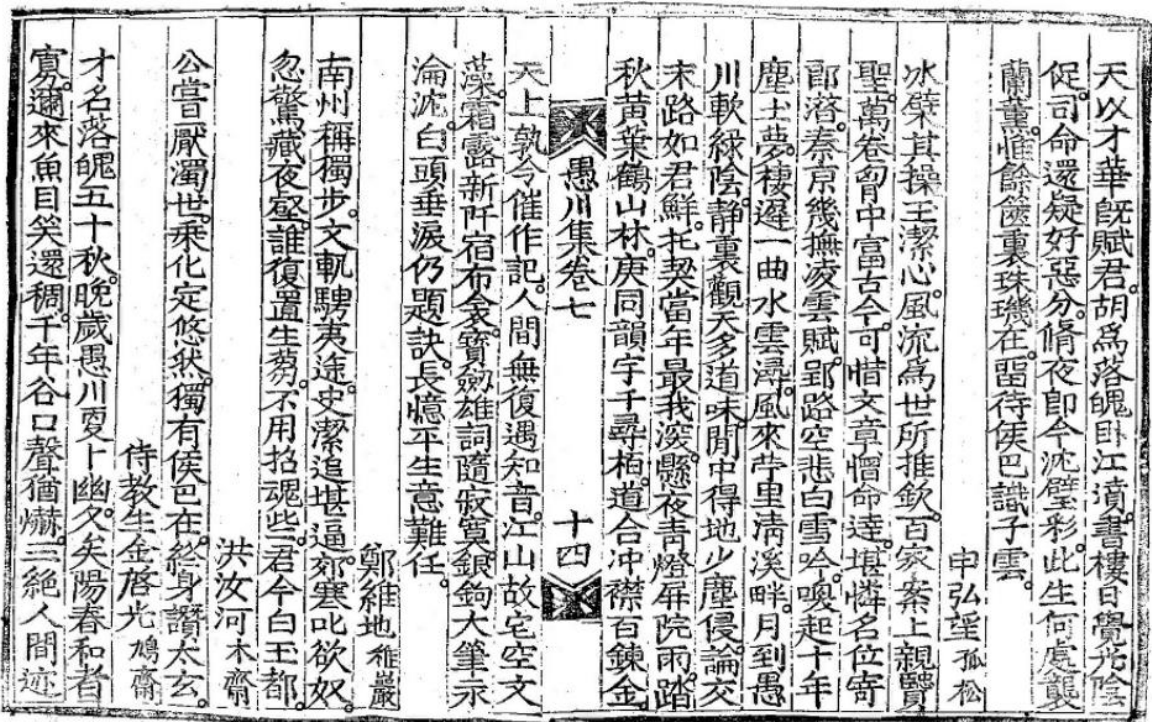 天以才華旣賦君。胡爲落魄卧江濆。書樓日覺光陰
促。司命還疑好惡分。脩夜卽今沈璧彩。此生何處襲
蘭薰。惟餘篋裏珠璣在。留待侯巴識子雲。
申弘望 孤松
冰檗其操玉潔心。風流爲世所推欽。百家案上親賢
聖。萬卷胷中富古今。可惜文章憎命達。堪憐名位寄
郎潛。秦京幾撫凌雲賦。郢路空悲白雪吟。喚起十年
塵土夢。棲遲一曲水雲潯。風來芧里淸溪畔。月到愚
川軟綠陰。静裏觀天多道味。閒中得地少塵侵。論交
末路如君鮮。托契當年最我深。懸夜靑燈屛院雨。踏
秋黃葉鶴山林。庚同韻宇千尋栢。道合冲襟百鍊金。
愚川集卷七
十四
天上孰令催作記。人間無復遇知音。江山故宅空文
藻。霜露新阡宿布衾。寶劒雄詞隨寂寞。銀鉤大筆示
淪沈。白頭垂淚仍題訣。長憶平生意難任。
鄭維地 稚巖
南州稱獨步。文軌騁夷途。史潔追堪逼。郊寒叱欲奴。
忽驚藏夜壑。誰復置生芻。不用招魂些。君今白玉都。
洪汝河 木齋
公嘗厭濁世。乘化定悠然。獨有侯巴在。終身讚太玄。
侍敎生金啓光 鳩齋
才名落魄五十秋。晚歲愚川更卜幽。久矣陽春和者
寡。邇來魚目笑還稠。千年谷口聲猶爀。三絕人間迹